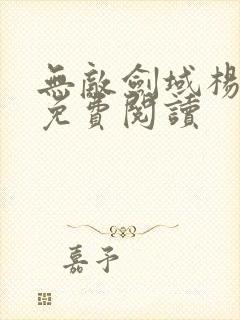 無敵劍域楊
免費閱讀
嘉予